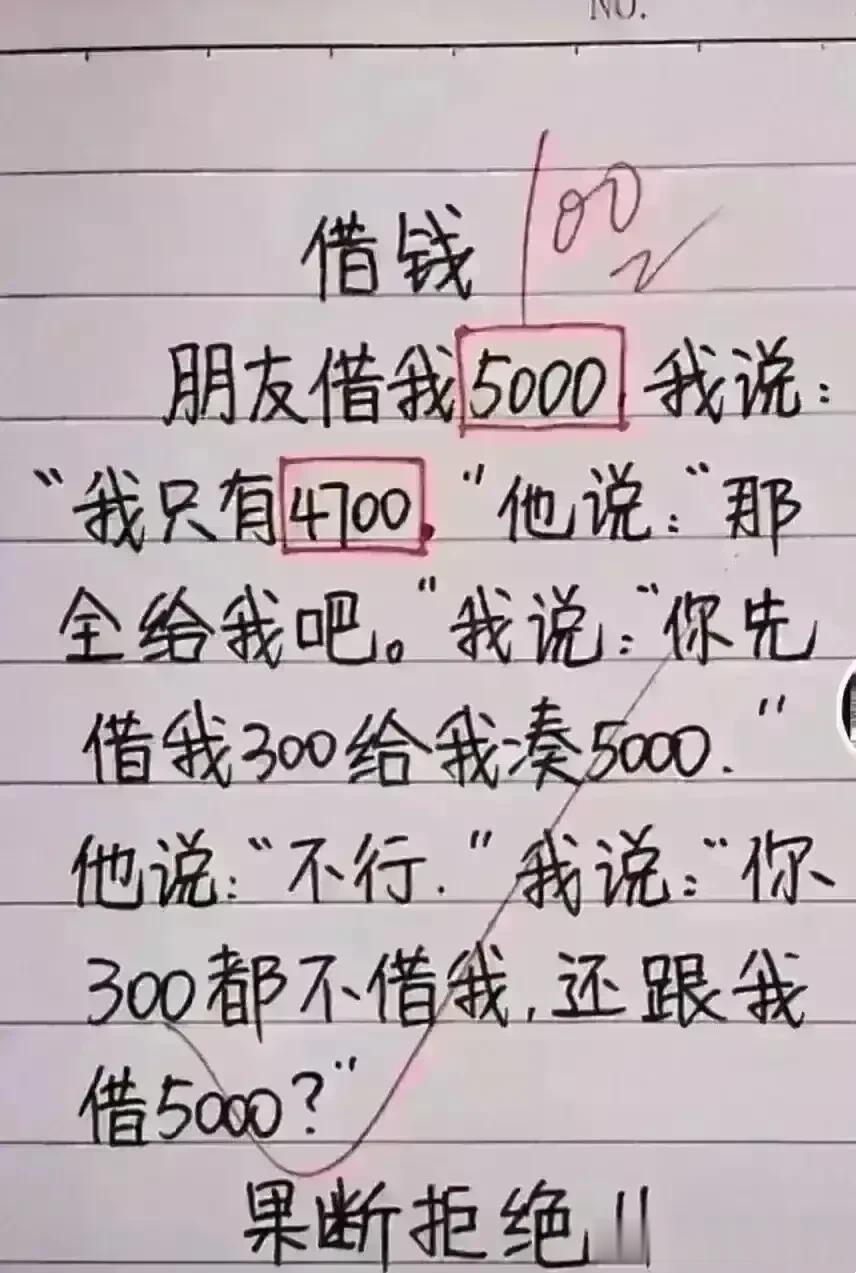 NO.
借钱
100
朋友借我5000，我说：
“我只有4700.”他说：“那
全给我吧。”我说：“你先
借我300给我凑5000.”
他说：“不行.”我说：“你
300都不借我，还跟我
借5000？”
果断拒绝！！